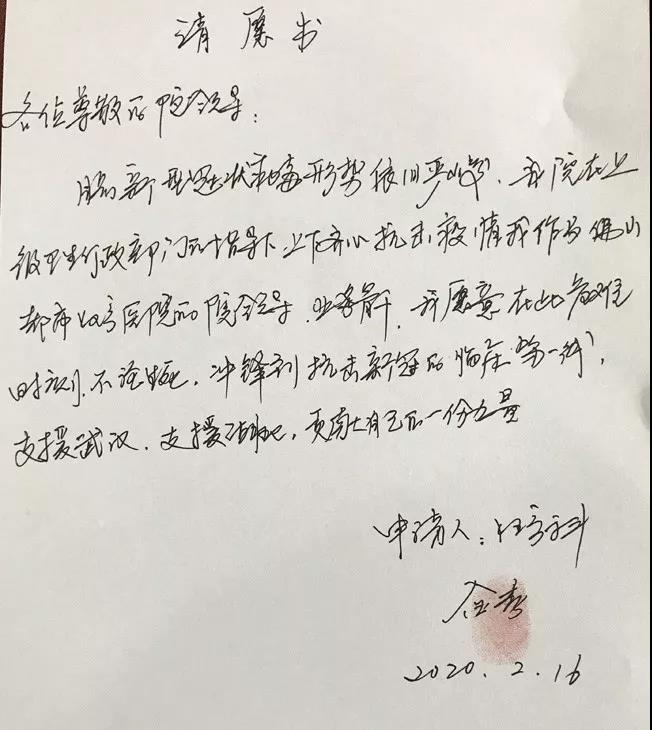 请愿书
各位尊敬的院领导：
目前新型冠状病毒形势依旧严峻，我院在上
级卫生行政部门的指导下上下齐心抗击疫情我作为
都市妇产医院的院领导，业务骨干，我愿意在此危难
时刻，不论生死，冲锋到抗击新冠的临床“第一线”，
支援武汉，支援湖北，贡献上自己的一份力量
申请人：妇产科
2020.2.16